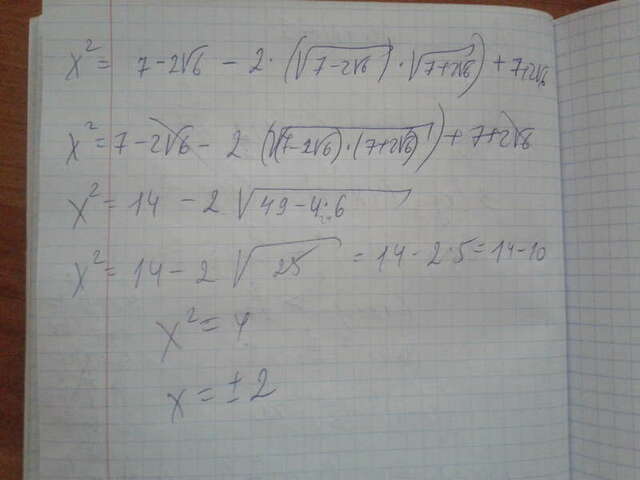 x² = 7 - 2√6 - 2·(√(7-2√6) · √(7+2√6)) + 7+2√6
x² = 7 - 2√6 - 2 (√((7-2√6)·(7+2√6))) + 7+2√6
x² = 14 - 2 √(49-4·6)
x² = 14 - 2 √25 = 14 - 2·5 = 14-10
x² = 4
x = ±2